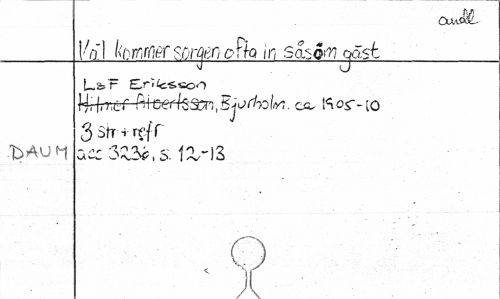 andl
Väl kommer sorgen ofta in såsom gäst
L&F Eriksson
Hilmer Albertsson, Bjurholm. ca 1905-10
3 str + refr
DAUM acc 3236, s. 12-13